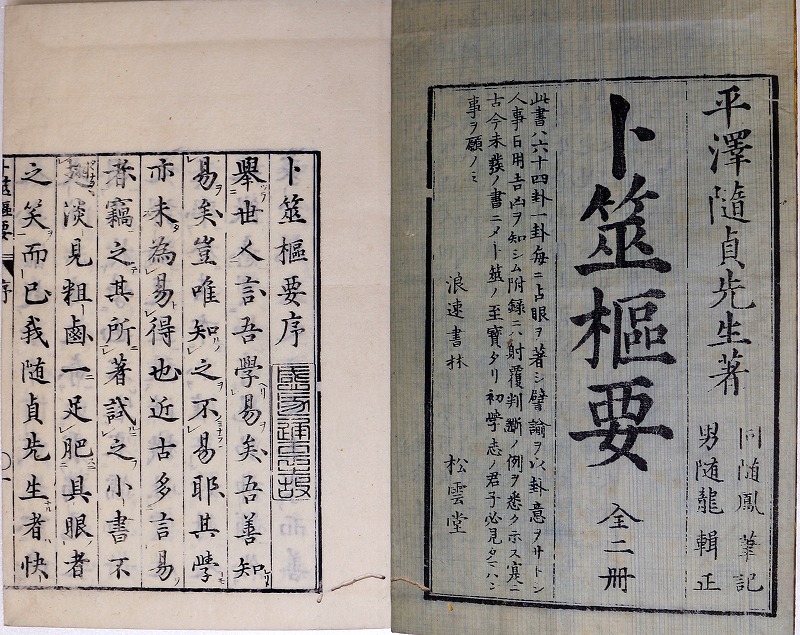 平澤隨貞先生著
同随鳳 筆記
男随龍 輯正
卜筮樞要 全二冊
此書ハ六十四卦一卦毎ニ占眼ヲ著シ譬諭ヲ以卦意ヲサトシ
人事百用吉凶ヲ知シム附録ニハ射覆判断ノ例ヲ悉ク示ス寔ニ
古今未發ノ書ニメ卜筮ノ至寶タリ初學志ノ君子必見タマハン
事ヲ願ノミ
浪速書林 松雲堂
卜筮樞要序
舉世人言吾學易矣吾善知
易矣豈唯知之不易耶其學
亦未為易得也近古多言易
者竊之其所著試之小書不
淡見粗鹵一足肥具眼者
之笑而已我随貞先生者快
卜筮樞要 序